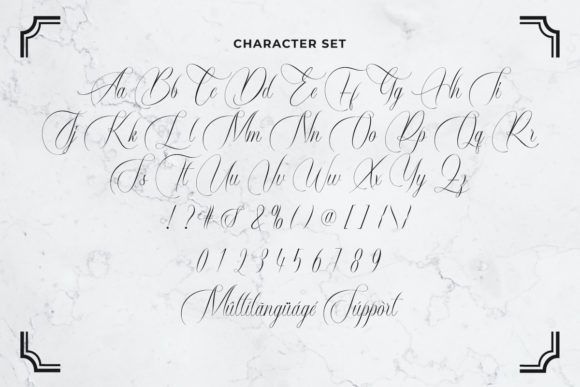 CHARACTER SET
Aa Bb Cc Dd Ee Ff Gg Hh Ii
Jj Kk Ll Mm Nn Oo Pp Qq Rr
Ss Tt Uu Vv Ww Xx Yy Zz
! ? # $ & % ( ) @ [ ] / \ /
0 1 2 3 4 5 6 7 8 9
Mûltilãngüágé Súppört